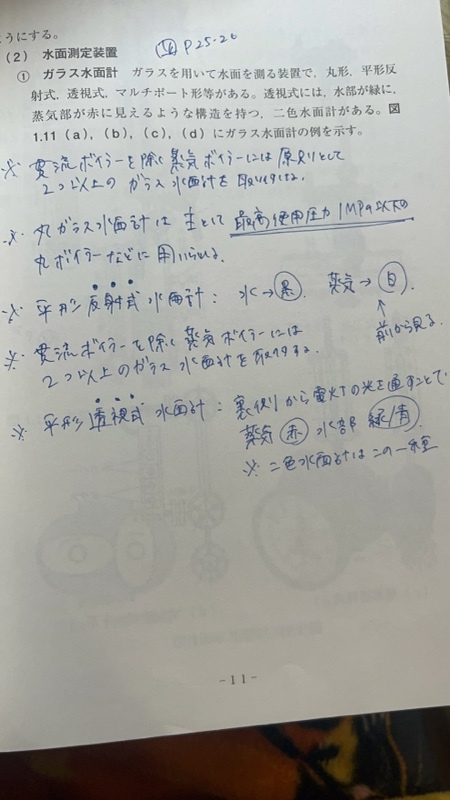 ようにする。
(2) 水面測定装置
P25-26
① ガラス水面計 ガラスを用いて水面を測る装置で，丸形，平形反
射式，透視式，マルチポート形等がある。透視式には，水部が緑に，
蒸気部が赤に見えるような構造を持つ，二色水面計がある。図
1.11 (a)，(b)，(c)，(d)にガラス水面計の例を示す。
※ 貫流ボイラーを除く蒸気ボイラーには原則として
2つ以上のガラス水面計を取り付ける。
※ 丸ガラス水面計は主として最高使用圧力1MPa以下の
丸ボイラーなどに用いられる。
※ 平形反射式水面計：水→黒． 蒸気→白．
↑
前から見る
※ 貫流ボイラーを除く蒸気ボイラーには
2つ以上のガラス水面計を取り付ける。
※ 平形透視式水面計：裏側から電灯の光を通すことで
蒸気 赤 水部 緑/青
※ 二色水面計はこの一種
-11-